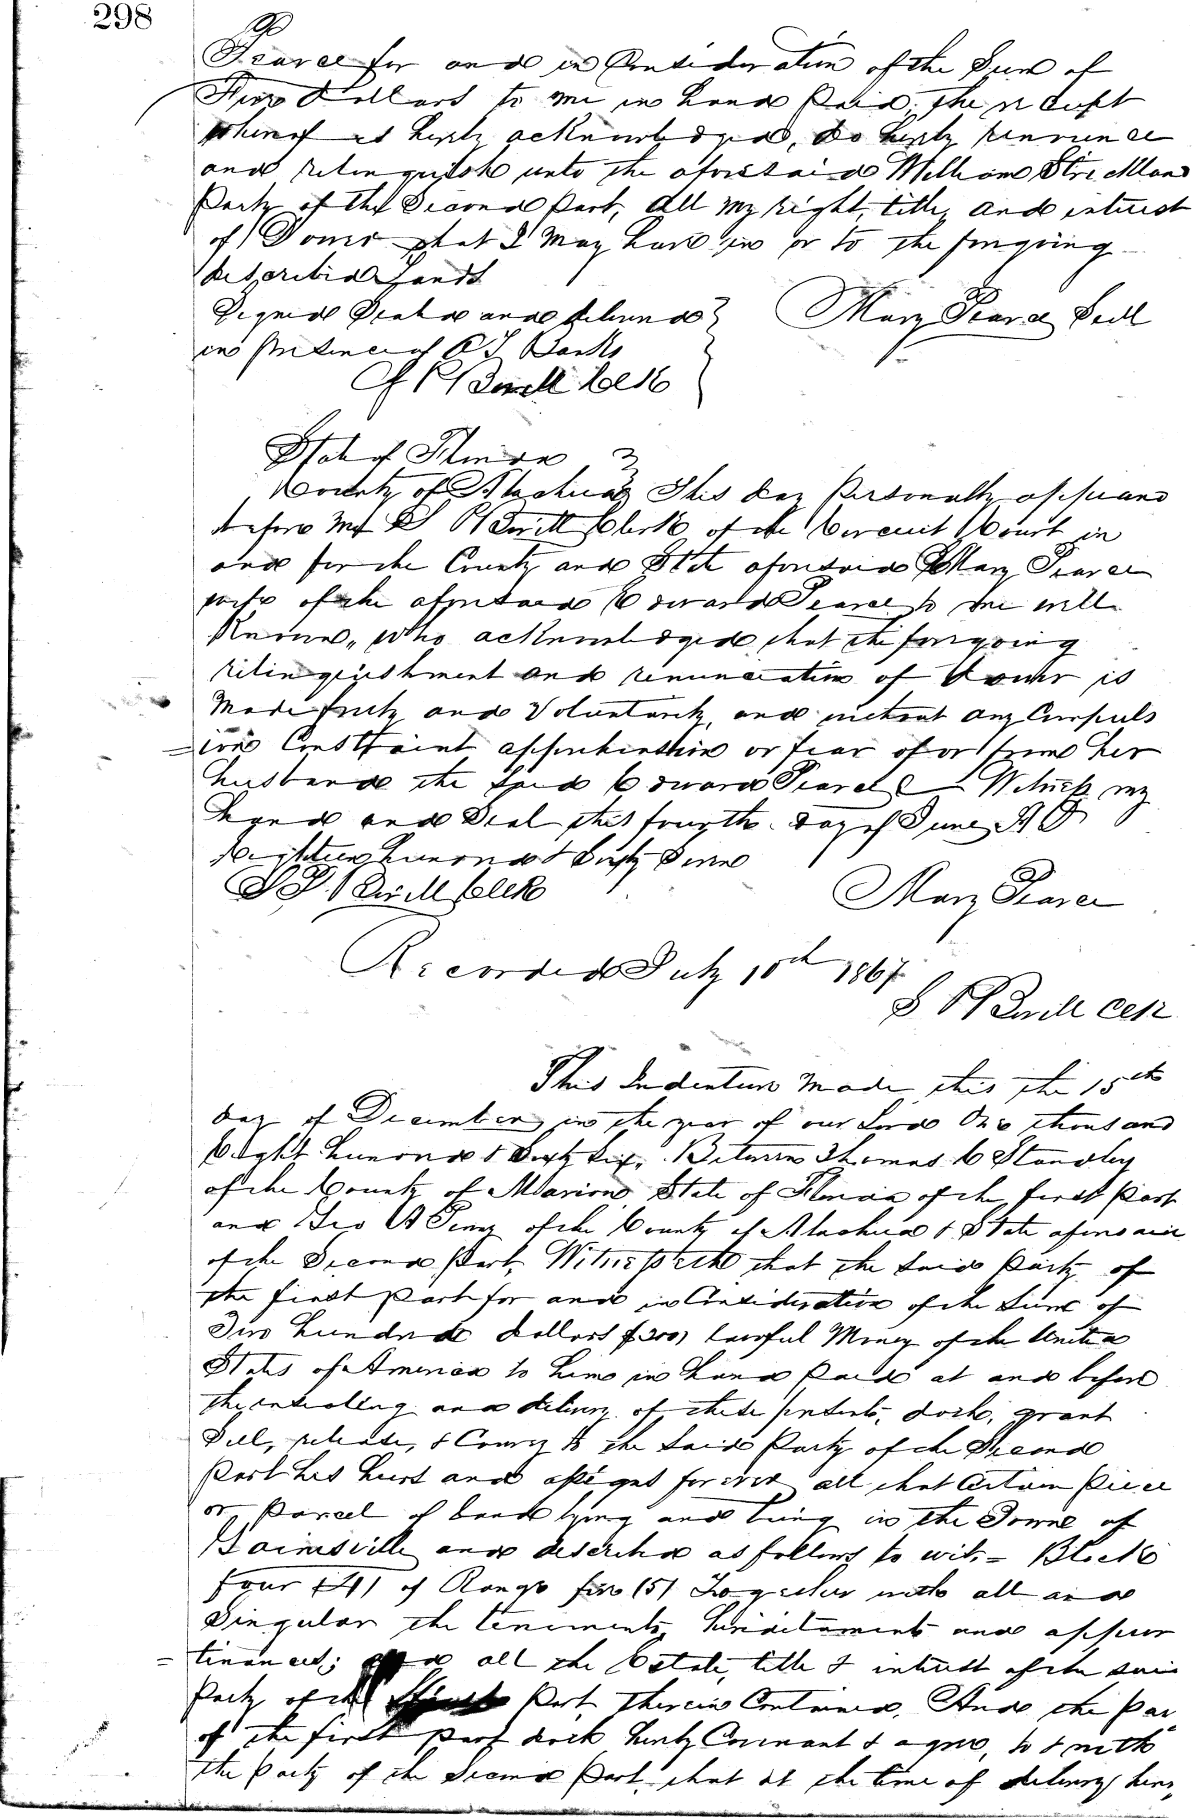 298
Pearce for and in Consideration of the Sum of
Five Dollars to me in hand Paid, the receipt
whereof is hereby acknowledged, do hereby renounce
and relinquish unto the aforesaid William Strickland
Party of the Second Part, all my right, title, and interest
of Dower that I may have in or to the foregoing
described Lands
Signed Sealed and delivered } Mary Pearce Seal
in presence of Banks
Bevill Clk
State of Florida }
County of Alachua } This day Personally appeared
before Me S Bevill Clerk of the Circuit Court in
and for the County and State aforesaid Mary Pearce
wife of the aforesaid Edward Pearce to me well
Known, who acknowledged that the foregoing
relinquishment and renunciation of dower is
Made freely and Voluntarily, and without any Compuls
=ion Constraint apprehension or fear of or from her
husband the said Edward Pearce Witness my
hand and Seal this fourth day of June A D
Eighteen hundred & Sixty Seven
Bevill Clerk Mary Pearce
Recorded July 10th 1867
S Bevill Clk
This Indenture Made this the 15th
day of December in the year of our Lord One thousand
Eight hundred & Sixty Six, Between Thomas C Standley
of the County of Marion State of Florida of the first Part
and Geo A of the County of Alachua & State aforesaid
of the Second Part, Witnesseth that the Said Party of
the first Part for and in Consideration of the Sum of
Two hundred dollars $200) lawful Money of the United
States of America to him in hand Paid at and before
the ensealing and delivery of these presents, doth, grant
Sell, release, & Convey to the Said Party of the Second
Part his heirs and assigns forever all that Certain Piece
or Parcel of Land lying and being in the Town of
Gainesville and described as follows to wit:= Block
four (4) of Range five (5) Together with all and
Singular the tenements, hereditaments and appur
=tinances; and all the Estate, title & interest of the said
Party of the first Part therein Contained. And the Par
of the first Part doth hereby Covenant & agree, to & with
the Party of the Second Part, that at the time of delivery here